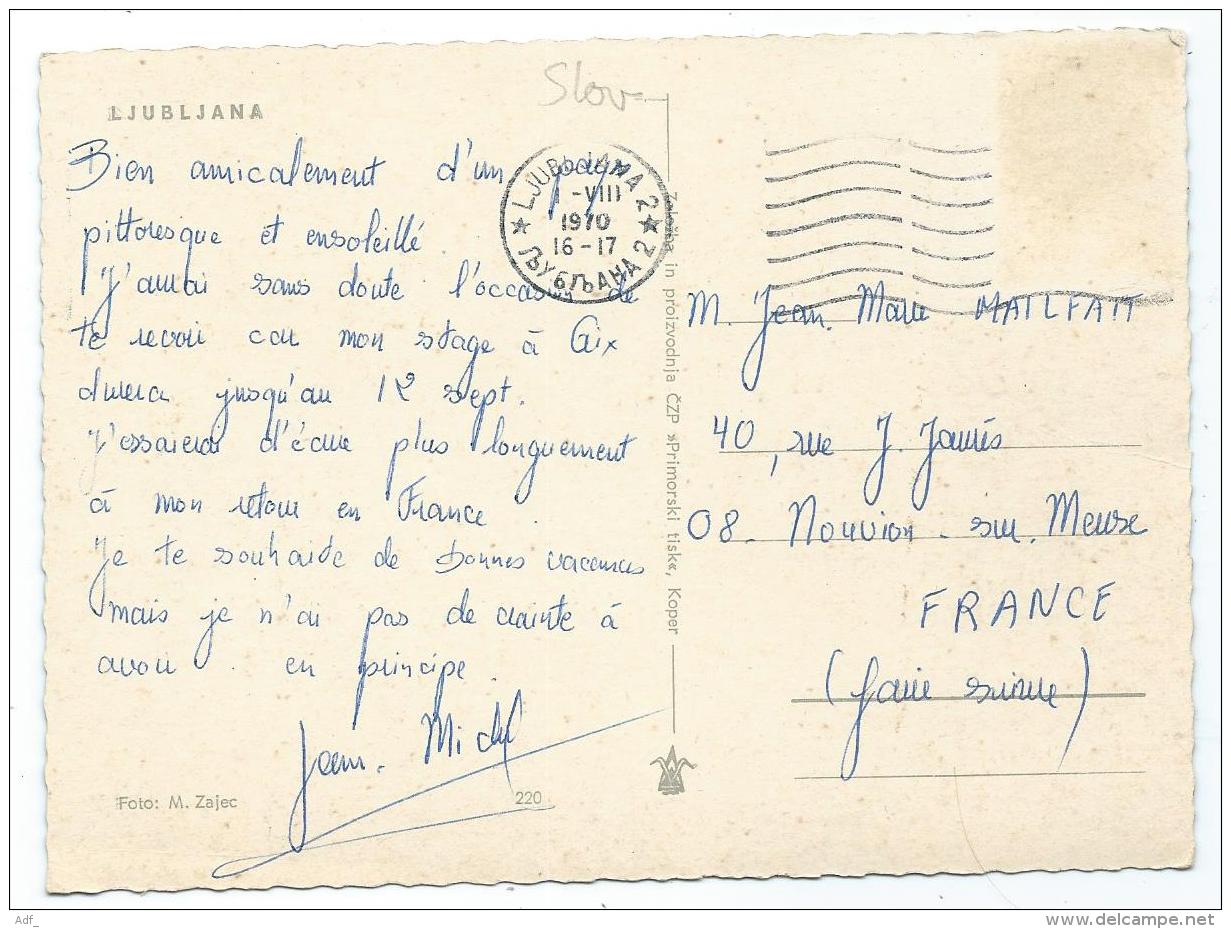 Slov
LJUBLJANA
Bien amicalement d'un pays
pittoresque et ensoleillé.
J'aurai sans doute l'occasion de
te revoir car mon stage à Aix
durera jusqu'au 12 sept.
J'essaierai d'écrire plus longuement
à mon retour en France.
Je te souhaite de bonnes vacances
mais je n'ai pas de crainte à
avoir. en principe.
Jean. Michel
Foto: M. Zajec
220
LJUBLJANA 2
-VIII
1970
16-17
ЉУБЉАНА 2
Založba in proizvodnja ČZP »Primorski tisk«, Koper
M. Jean. Marie MAILFAIT
40, rue J. Jaurès
08. Nouvion. sur. Meuse
FRANCE
(faire suivre)
Adf_
delcampe.net